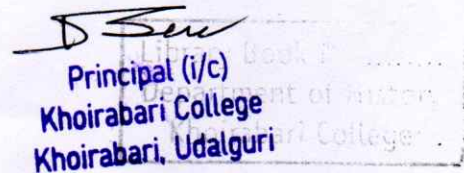 Principal (i/c)
Khoirabari College
Khoirabari, Udalguri
Library Book
Department of
Khoirabari College